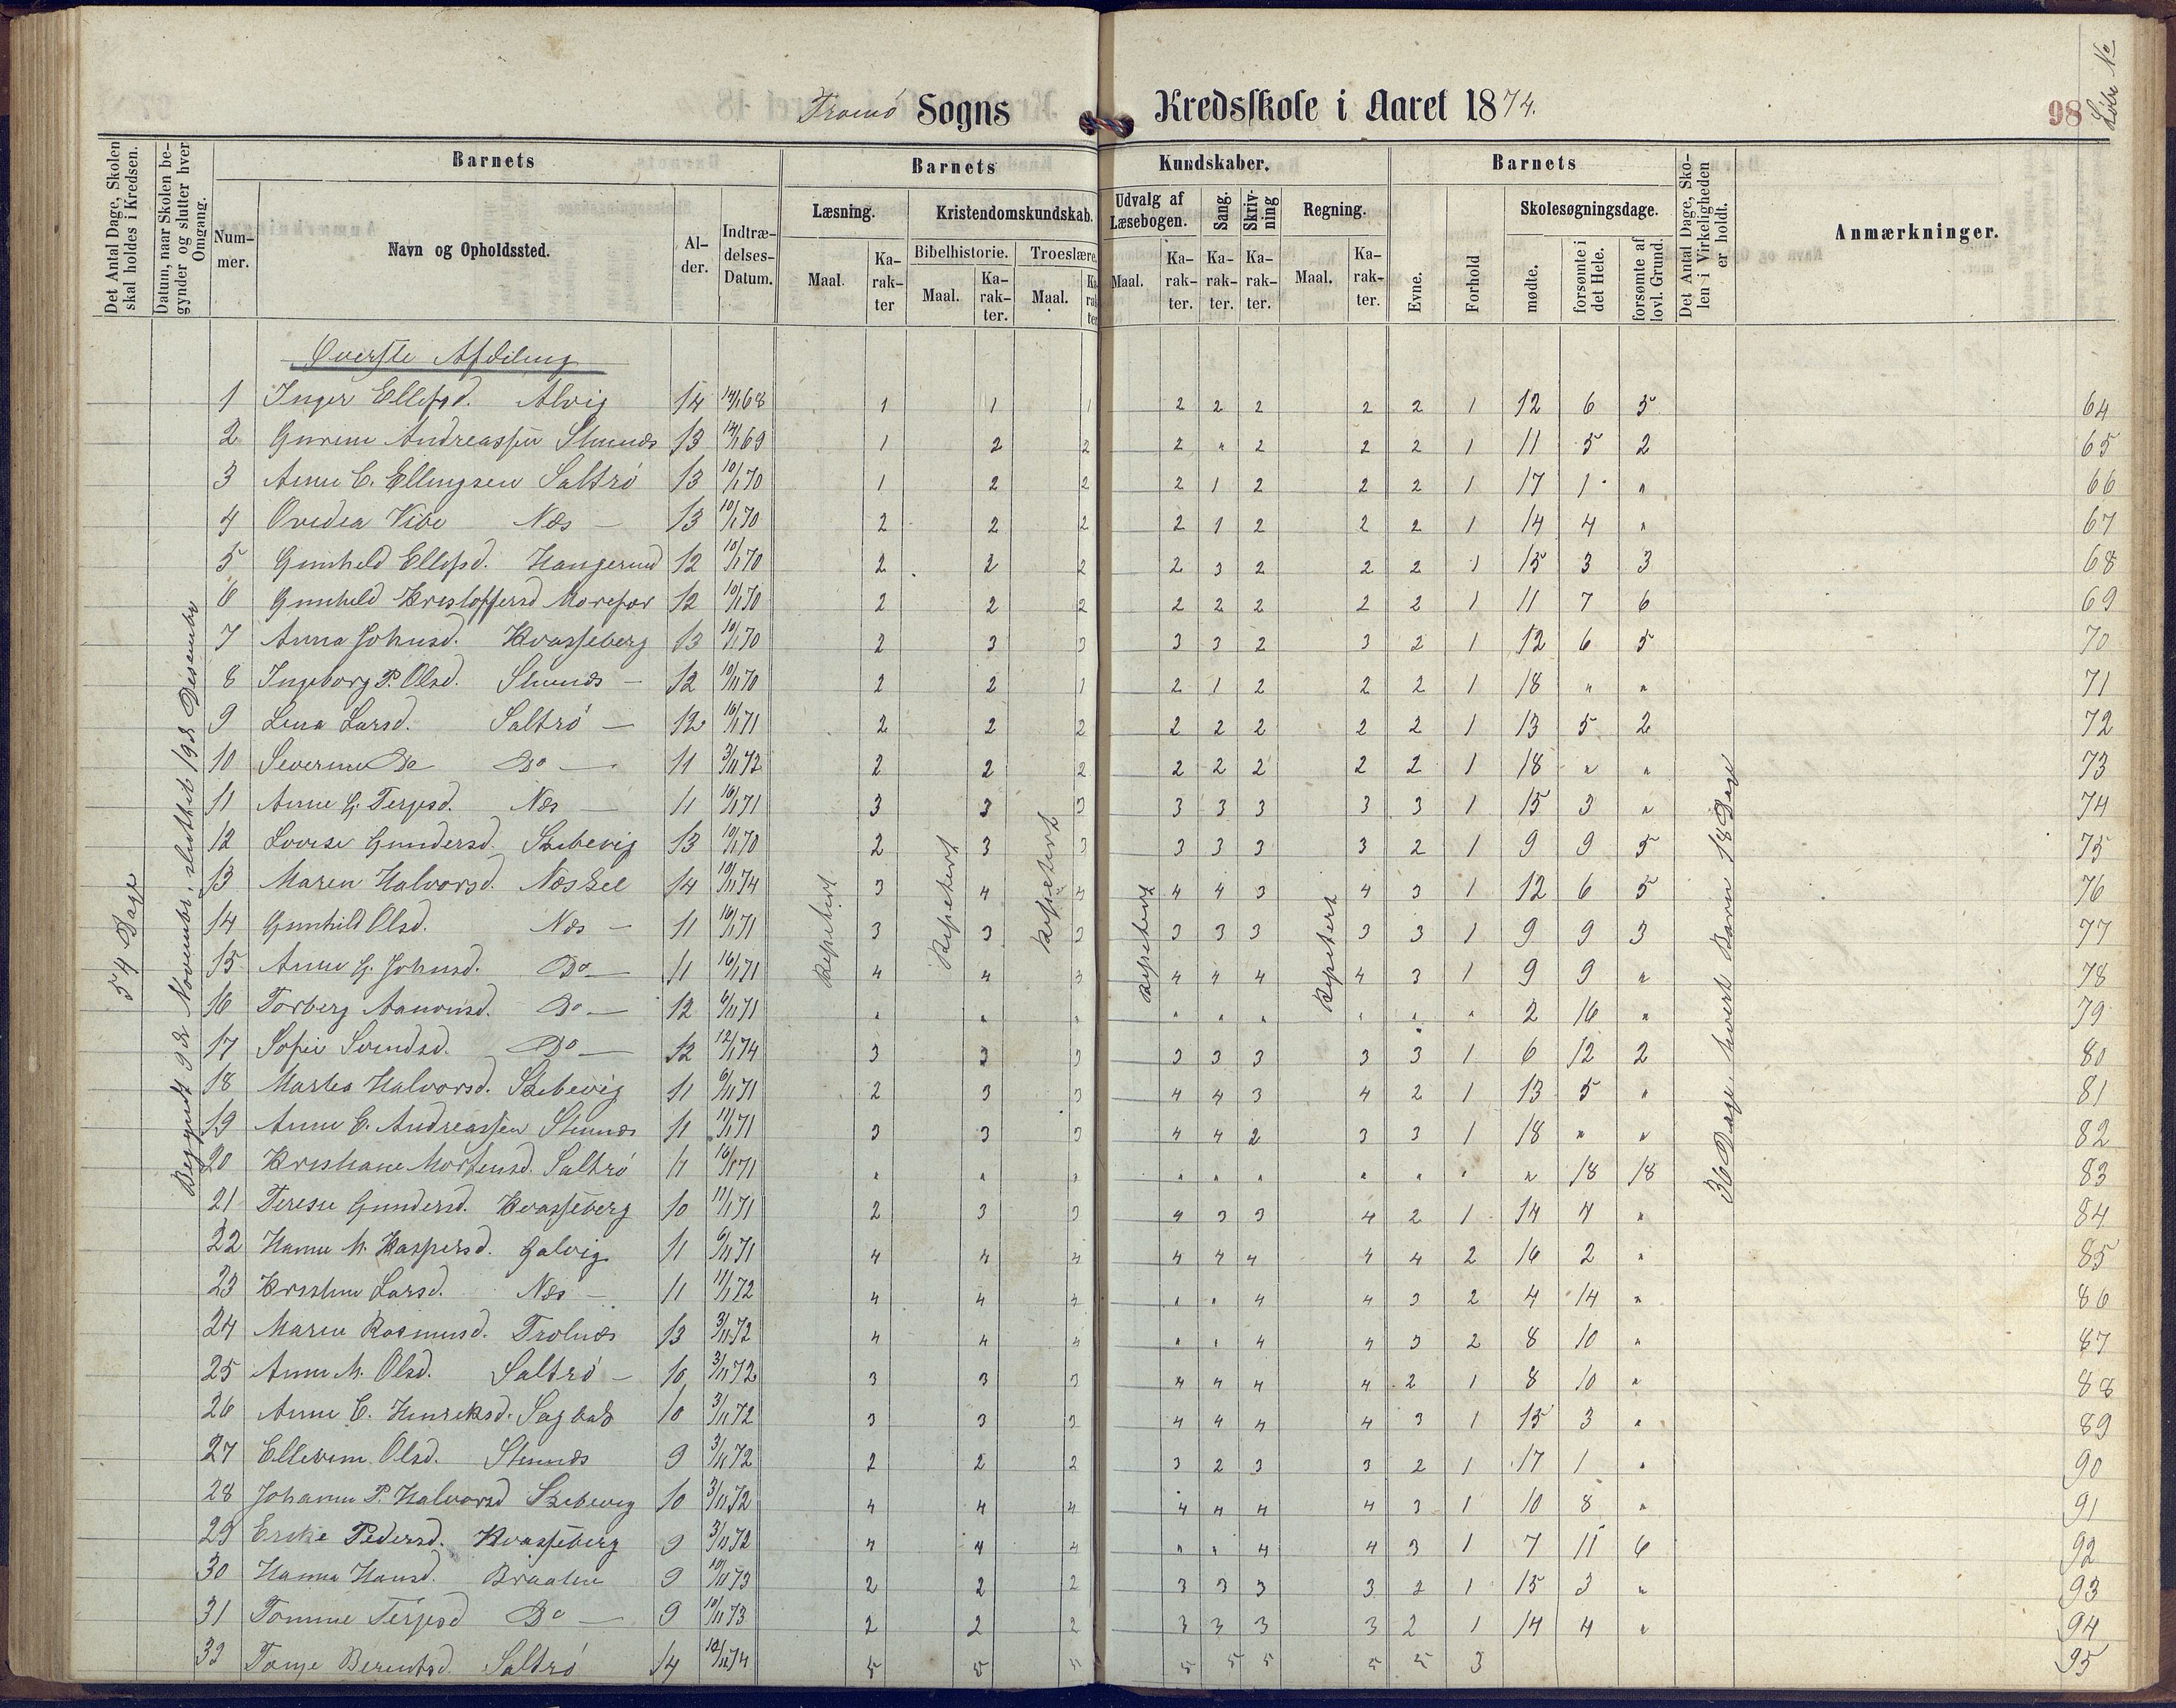 Tromø Sogns Kredsskole i Aaret 1874.
98
Løbe No
Det Antal Dage, Skolen skal holdes i Kredsen.
Datum, naar Skolen begynder og slutter hver Omgang.
Barnets
Barnets
Kundskaber.
Barnets
Det Antal Dage, Skolen i Virkeligheden er holdt.
Anmærkninger.
Nummer.
Navn og Opholdssted.
Alder.
Indtrædelses-Datum.
Læsning.
Kristendomskundskab.
Udvalg af Læsebogen.
Sang.
Skrivning
Regning.
Evne.
Forhold
Skolesøgningsdage.
Maal.
Karakter
Bibelhistorie.
Troeslære.
Maal.
Karakter.
Maal.
Karakter
Maal.
Karakter.
Karakter.
Karakter.
Maal.
Karakter.
mødte.
forsømte i det Hele.
forsømte af lovl. Grund.
54 Dage
Begyndt 9de Novembr. sluttet 19de Desember
Repetert
Repetert
Repetert
Repetert
Repetert
36 Dage hvert Barn 18 Dage
Øverste Afdeling
1 Inger Ellefsd. Alvig 14 68 1 1 1 2 2 2 2 2 1 12 6 5 64
2 Andreassen Stennæs 13 69 1 2 2 2 " 2 2 2 1 11 5 2 65
3 Anne C. Ellingsen Saltrø 13 10/1 70 1 2 2 2 1 2 2 2 1 17 1 " 66
4 Ovedia Vibe Næs — 13 10/1 70 2 2 2 2 1 2 2 2 1 14 4 " 67
5 Gunheld Ellefsd. Haugerud 12 10/1 70 2 2 2 2 3 2 2 2 1 15 3 3 68
6 Gunheld Kristoffersd Morefær 12 10/1 70 2 2 2 2 2 2 2 2 1 11 7 6 69
7 Anna Johnsd. Kvasseberg 13 10/1 70 2 3 3 3 3 2 3 2 1 12 6 5 70
8 Ingeborg P. Olsd. Stennæs — 12 10/11 70 2 2 1 2 1 2 2 2 1 18 " " 71
9 Lina Larsd. Saltrø — 12 16/1 71 2 2 2 2 2 2 2 2 1 13 5 2 72
10 Severine Do Do — 11 3/11 72 2 2 2 2 2 2 2 2 1 18 " " 73
11 Anne G. Terjesd. Næs — 11 16/1 71 3 3 3 3 3 3 3 3 1 15 3 " 74
12 Lovise Gundersd. Skibevig 13 10/1 70 2 3 3 3 3 3 3 2 1 9 9 5 75
13 Maren Halvorsd. 14 10/11 74 3 4 4 4 4 3 4 3 1 12 6 5 76
14 Gunhild Olsd. Næs — 11 16/1 71 3 3 3 3 3 3 3 3 1 9 9 3 77
15 Anne G. Johnsd. Do — 11 16/1 71 4 4 3 4 4 4 4 3 1 9 9 " 78
16 Torberg Aanonsd. Do — 12 6/11 71 " " " " " " " " " 2 16 " 79
17 Sofie Svendsd. Do — 12 12/1 74 3 3 3 3 3 3 3 3 1 6 12 2 80
18 Martea Halvorsd. Skibevig 11 6/11 71 2 3 3 4 4 3 4 2 1 13 5 " 81
19 Anne C. Andreassen Stennæs 11 11/1 71 3 3 3 4 4 2 3 3 1 18 " " 82
20 Kristiane Mortensd. Saltrø 11 16/1 71 " " " " " " " " " " 18 18 83
21 Terese Gundersd. Kvasseberg 10 11/1 71 2 3 3 4 3 3 4 2 1 14 4 " 84
22 Hanne M. Kaspersd. Galvig 11 6/11 71 4 4 4 4 4 4 4 4 2 16 2 " 85
23 Kristine Larsd. Næs — 11 11/1 72 4 4 4 " " 4 4 3 2 4 14 " 86
24 Maren Rasmusd. Trolnæs 13 3/11 72 4 4 4 " " 4 4 3 2 8 10 " 87
25 Anne M. Olsd. Saltrø — 10 3/11 72 3 3 3 4 4 4 4 2 1 8 10 " 88
26 Anne C. Henreksd. 10 3/11 72 3 3 3 4 4 4 4 3 1 15 3 " 89
27 Ellevine Olsd. Stennæs 9 3/11 72 2 2 2 3 2 3 3 2 1 17 1 " 90
28 Johanne P. Halvorsd Skibevig 10 3/11 72 4 4 4 4 4 4 4 3 1 10 8 " 91
29 Pedersd. Kvasseberg 9 3/11 72 4 4 4 " " 4 4 3 1 7 11 6 92
30 Hanna Hansd. Braaten 9 10/11 73 2 2 2 3 3 3 3 2 1 15 3 " 93
31 Tomine Terjesd Do — 9 10/11 73 2 2 2 3 3 3 3 2 1 14 4 " 94
33 Berentsd. Saltrø 14 74 5 5 5 5 5 5 5 5 3 95